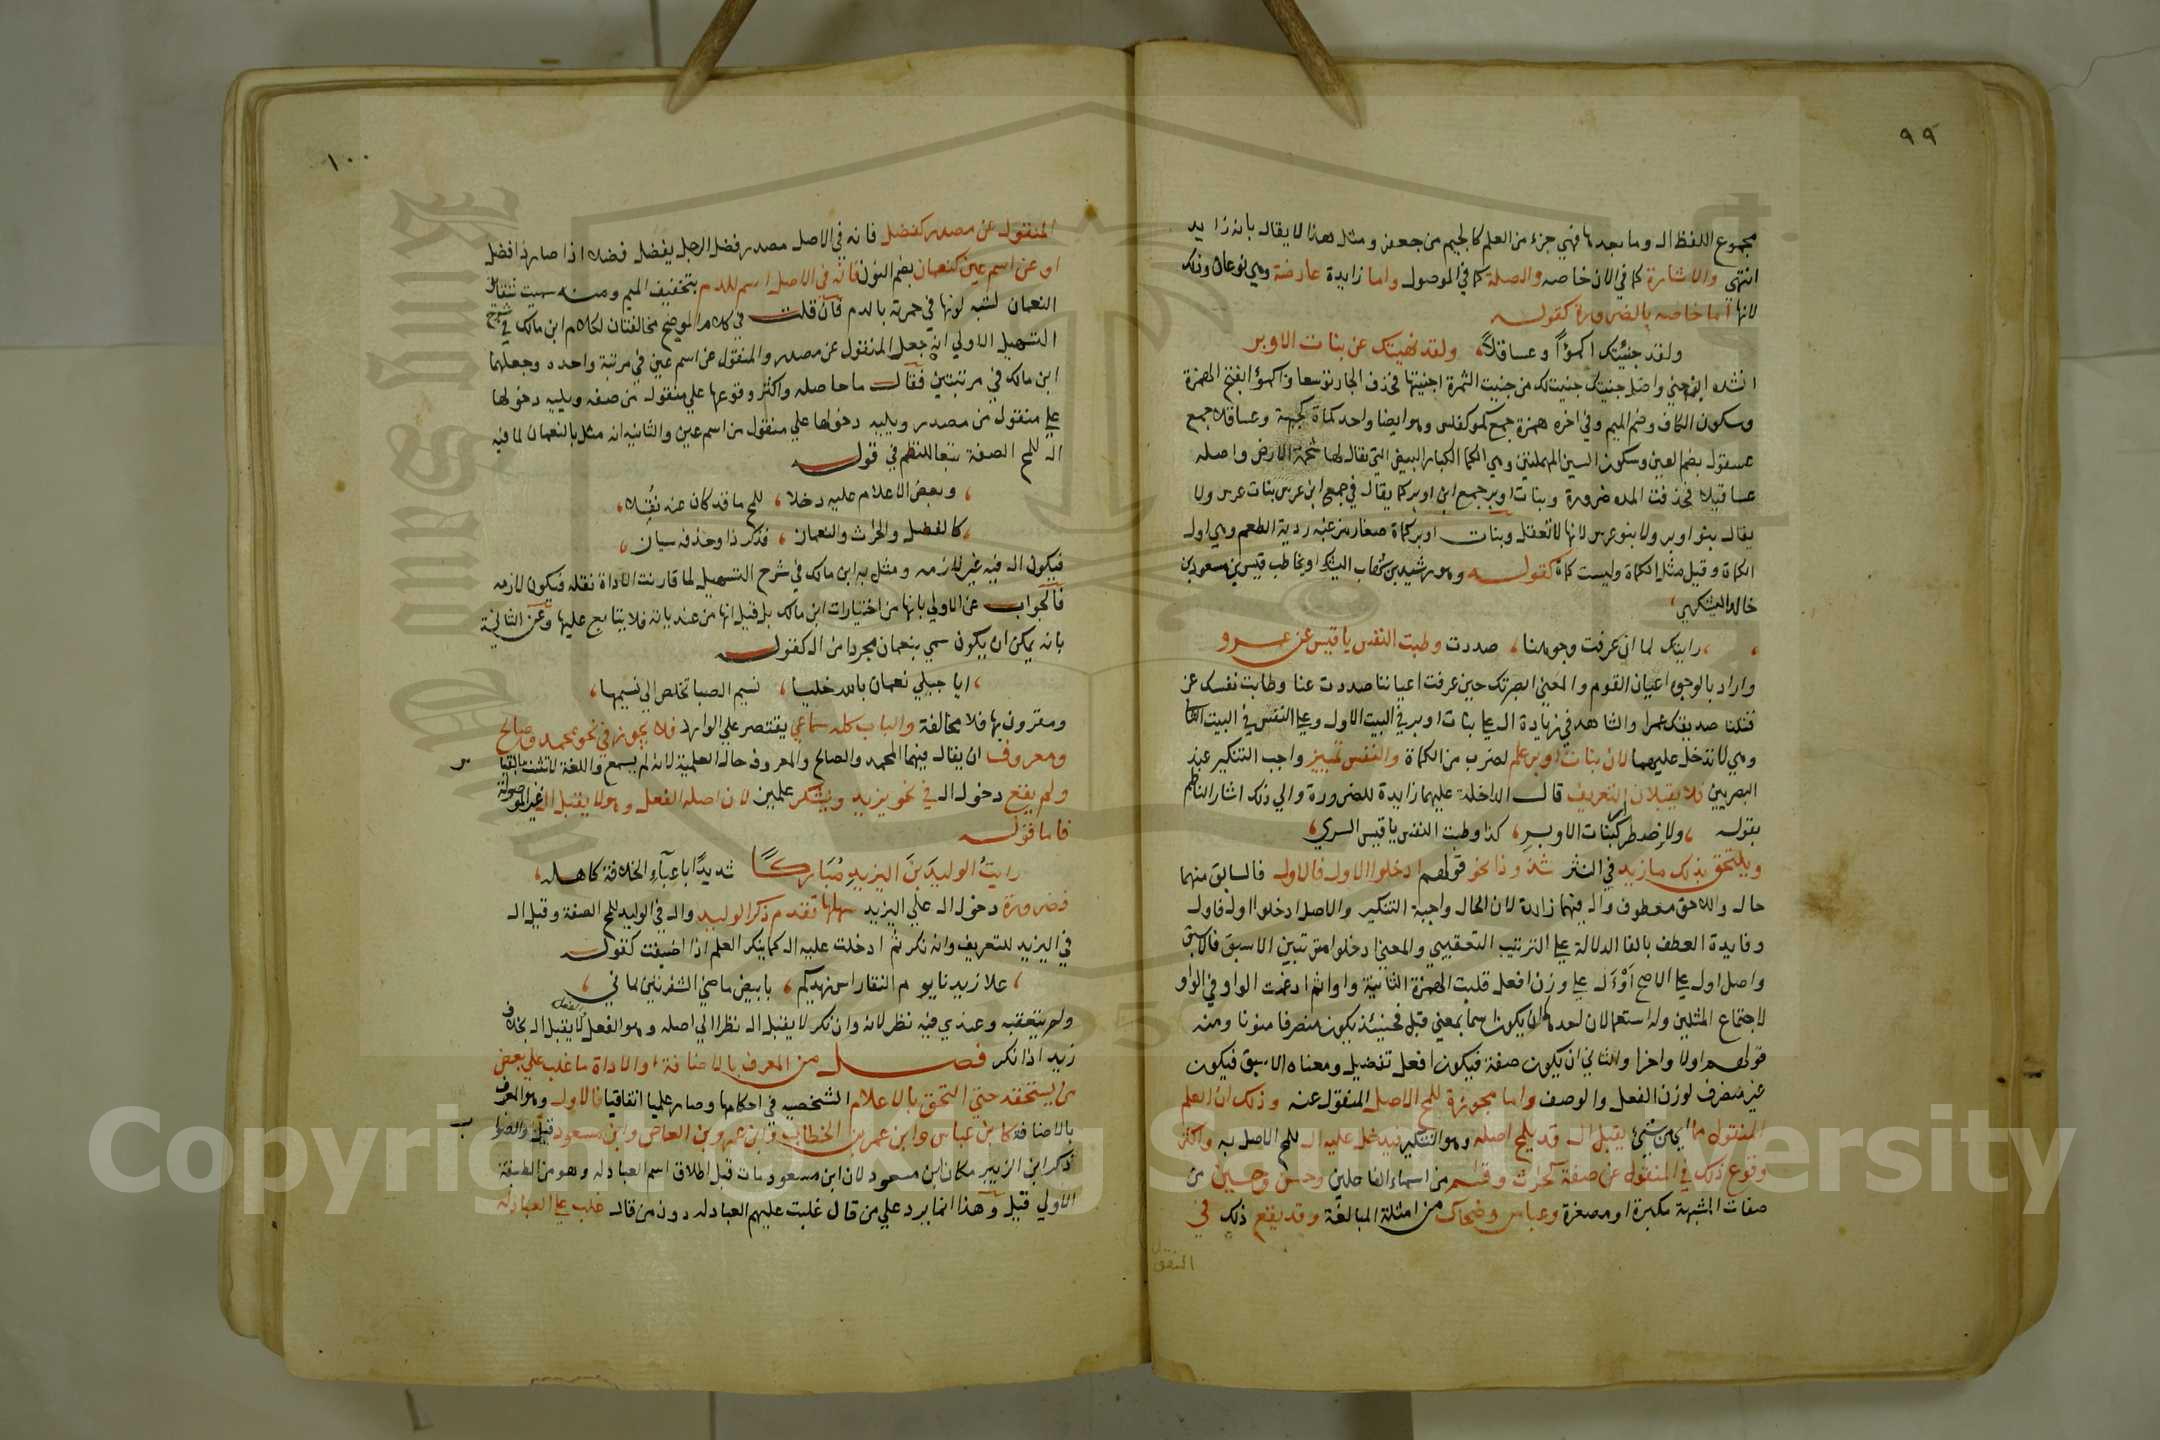 ٩٩
مجموع اللفظ ال وما بعدها فهي جزء من العلم كالجيم من جعفر ومثل هذا لا يقال بانه زايد
انتهى والاشارة كما في الان خاصه والصلة كما في الموصول واما زايدة عارضة وهي نوعان وذلك
لانها اما خاصه بالضرورة كقوله
ولقد جنيتك اكمؤاً وعساقلاً ولقد نهيتك عن بنات الاوبر
انشده ابن جني واصل جنيتك جنيت لك من جنيت الثمرة اجنيتها فحذف الجار توسعا واكمؤ بفتح الهمزة
وسكون الكاف وضم الميم وفي اخره همزة جمع كمو كفلس وهو ايضا واحد كماة كجبهة وعساقلا جمع
عسقول بضم العين وسكون السين المهملتين وهي الكماة الكبار البيض التي يقال لها شحمة الارض واصله
عساقيلا فحذفت المدة ضرورة وبنات اوبر جمع ابن اوبر كما يقال في جمع ابن عرس بنات عرس ولا
يقال بنو اوبر ولا بنو عرس لانها لا تعقل وبنات اوبر كماة صغار مزغبه ردية الطعم وهي اول
الكماة وقيل مثل الكماة وليست كماة كقوله وهو رشيد بن شهاب اليشكري يخاطب قيس بن مسعود بن
خالد اليشكري
رايتك لما ان عرفت وجوهنا صددت وطبت النفس يا قيس عن عمرو
واراد بالوجوه اعيان القوم والمعنى ابصرتك حين عرفت اعياننا صددت عنا وطابت نفسك عن
قتلنا صديقك عمرا والشاهد في زيادة ال على بنات اوبر في البيت الاول وعلى النفس في البيت الثاني
وهي لا تدخل عليهما لان بنات اوبر علم لضرب من الكماة والنفس تمييز واجب التنكير عند
البصريين فلا يقبلان التعريف قال الداخلة عليهما زايدة للضرورة والى ذلك اشار الناظم
بقوله ولاضطرار كبنات الاوبر كذا وطبت النفس يا قيس السري
ويلتحق بذلك ما زيد في النثر شذوذا نحو قولهم ادخلوا الاول فالاول فالسابق منهما
حال واللاحق معطوف وال فيهما زائدة لان الحال واجبة التنكير والاصل ادخلوا اول فاول
وفايدة العطف بالفا الدلالة على الترتيب التعقيبي والمعنى ادخلوا مترتبين الاسبق فالاسبق
واصل اول على الاصح أوْأَل على وزن افعل قلبت الهمزة الثانية واوا ثم ادغمت الواو في الواو
لاجتماع المثلين وله استعمالان احدهما ان يكون اسما بمعنى قبل فحينئذ يكون منصرفا منونا ومنه
قولهم اولا واخرا والثاني ان يكون صفة فيكون افعل تفضيل ومعناه الاسبق فيكون
غير منصرف لوزن الفعل والوصف واما مجوزة للمح الاصل المنقول عنه وذلك ان العلم
المنقول مما يقبل ال قد يلمح اصله وهو التنكير فيدخل عليه ال للمح الاصل به واكثر
وقوع ذلك في المنقول عن صفة كحارث وقاسم من اسماء الفاعلين وحسن وحسين من
صفات المشبهة مكبرة او مصغرة وعباس وضحاك من امثلة المبالغة وقد يقع ذلك في
المنقول
١٠٠
المنقول عن مصدر كفضل فانه في الاصل مصدر فضل الرجل يفضل فضلا اذا صار ذا فضل
او عن اسم عين كنعمان بضم النون فانه في الاصل اسم للدم بتخفيف الميم ومنه سميت شقائق
النعمان لشبه لونها في حمرته بالدم فان قلت في كلام الموضح مخالفتان لكلام ابن مالك في شرح
التسهيل الاولى انه جعل المنقول عن مصدر والمنقول عن اسم عين في مرتبة واحده وجعلهما
ابن مالك في مرتبتين فقال ما حاصله واكثر وقوعها على منقول من صفه ويليه دخولها
على منقول من مصدر ويليه دخولها على منقول من اسم عين والثانية انه مثل بالنعمان لما فيه
ال للمح الصفة تبعا للنظم في قوله
وبعض الاعلام عليه دخلا للمح ما قد كان عنه نقلا
كالفضل والحارث والنعمان فذكر ذا وحذفه سيان
فيكون ال فيه غير لازمه ومثل به ابن مالك في شرح التسهيل لما قارنت الاداة نقله فيكون لازمه
فالجواب عن الاولى بانها من اختيارات ابن مالك بل قيل انها من عندياته فلا يتابع عليها وعن الثانية
بانه يمكن ان يكون سمي بنعمان مجردا من ال كقوله
ايا جبلي نعمان بالله خليا نسيم الصبا تخلص الي نسيمها
ومقرون بها فلا مخالفة والباب كله سماعي يقتصر على الوارد فلا يجوز في نحو محمد وصالح
ومعروف ان يقال فيها المحمد والصالح والمعروف حال العلمية لانه لم يسمع واللغة لا تثبت بالقياس
ولم يقع دخول ال في نحو يزيد ويشكر علمين لان اصله الفعل وهو لا يقبل ال غير الموصولة
فاما قوله
رايتُ الوليدَ بنَ اليزيدِ مُبَاركًا شديدًا باعباءِ الخلافة كاهله
فضرورة دخول ال على اليزيد سهلها تقدم ذكر الوليد وال في الوليد للمح الصفة وقيل ال
في اليزيد للتعريف وانه نكر ثم ادخلت عليه ال كما ينكر العلم اذا اضيفت كقوله
علا زيدنا يوم النقا راس زيدكم بابيض ماضي الشفرتين يماني
ولم يتعقبه وعندي فيه نظر لانه وان نكر لا يقبل ال نظرا الى اصله وهو الفعل لا يقبل ال بخلاف
زيد اذا نكر فصل من المعرف بالاضافة او الاداة ما غلب على بعض
من يستحقه حتى التحق بالاعلام الشخصيه في احكامها وصار علما اتفاقيا فالاول وهو المعرف
بالاضافة كابن عباس وابن عمر بن الخطاب وابن عمرو بن العاص وابن مسعود قيل والصواب
ذكر ابن الزبير مكان ابن مسعود لان ابن مسعود مات قبل اطلاق اسم العبادله وهو من الطبقة
الاولى قيل وهذا انما يرد على من قال غلبت عليهم العبادله دون من قال غلب على العبادله
Copyright © King Saud University